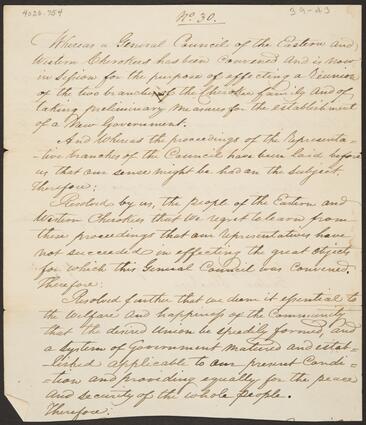 4026.754
No. 30.
39-43
Whereas a General Council of the Eastern and
Western Cherokees has been Convened and is now
in session for the purpose of effecting a Reunion
of the two branches of the Cherokee family and of
taking preliminary Measures for the establishment
of a New Government.
And Whereas the proceedings of the Representa-
tive branches of the Council have been laid before
us that our sense might be had on the subject.
Therefore:
Resolved by us, the people of the Eastern and
Western Cherokees that we regret to learn from
these proceedings that our representatives have
not succeeded in effecting the great objects
for which this General Council was Convened.
Therefore:
Resolved further that we deem it essential to
the Welfare and happiness of the Community
that the desired Union be speedily formed, and
a system of Government matured and estab-
-lished applicable to our present Condi-
tion and providing equally for the peace
and security of the whole people.
Therefore: